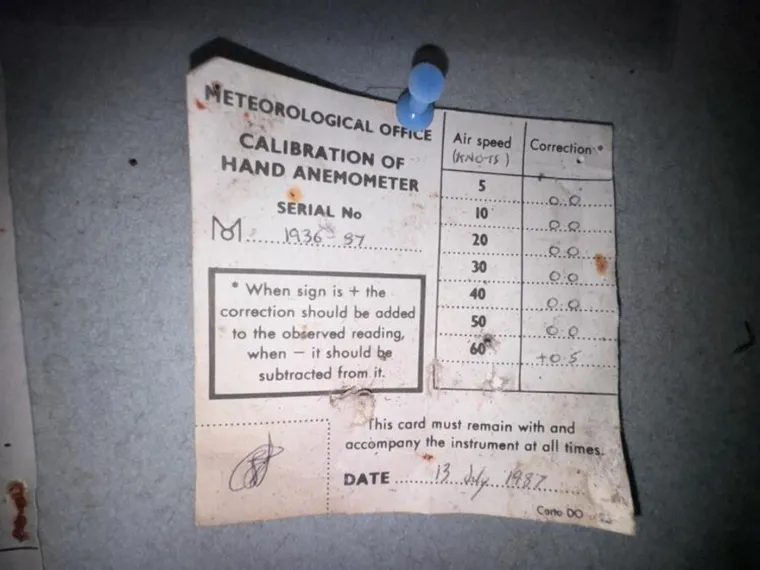 METEOROLOGICAL OFFICE
CALIBRATION OF
HAND ANEMOMETER
SERIAL No
1936-87
* When sign is + the
correction should be added
to the observed reading,
when — it should be
subtracted from it.
Air speed (KNOTS) Correction *
5 0.0
10 0.0
20 0.0
30 0.0
40 0.0
50 0.0
60 +0.5
This card must remain with and
accompany the instrument at all times.
DATE 13 July 1987
Carto DO